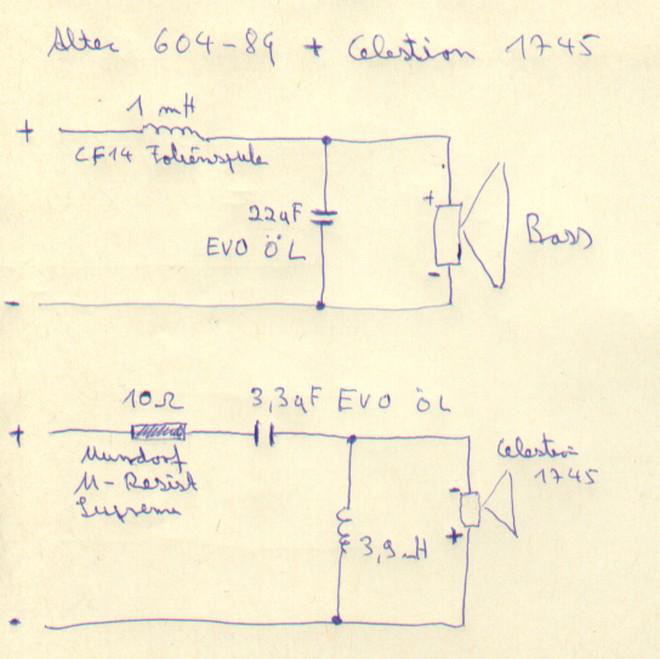 Altec 604-8G + Celestion 1745
1 mH
+
CF14 Folienspule
22uF
EVO ÖL
+
-
Bass
-
10Ω
3,3uF EVO ÖL
+
Mundorf
M-Resist
Supreme
Celestion
1745
-
+
3,9mH
-